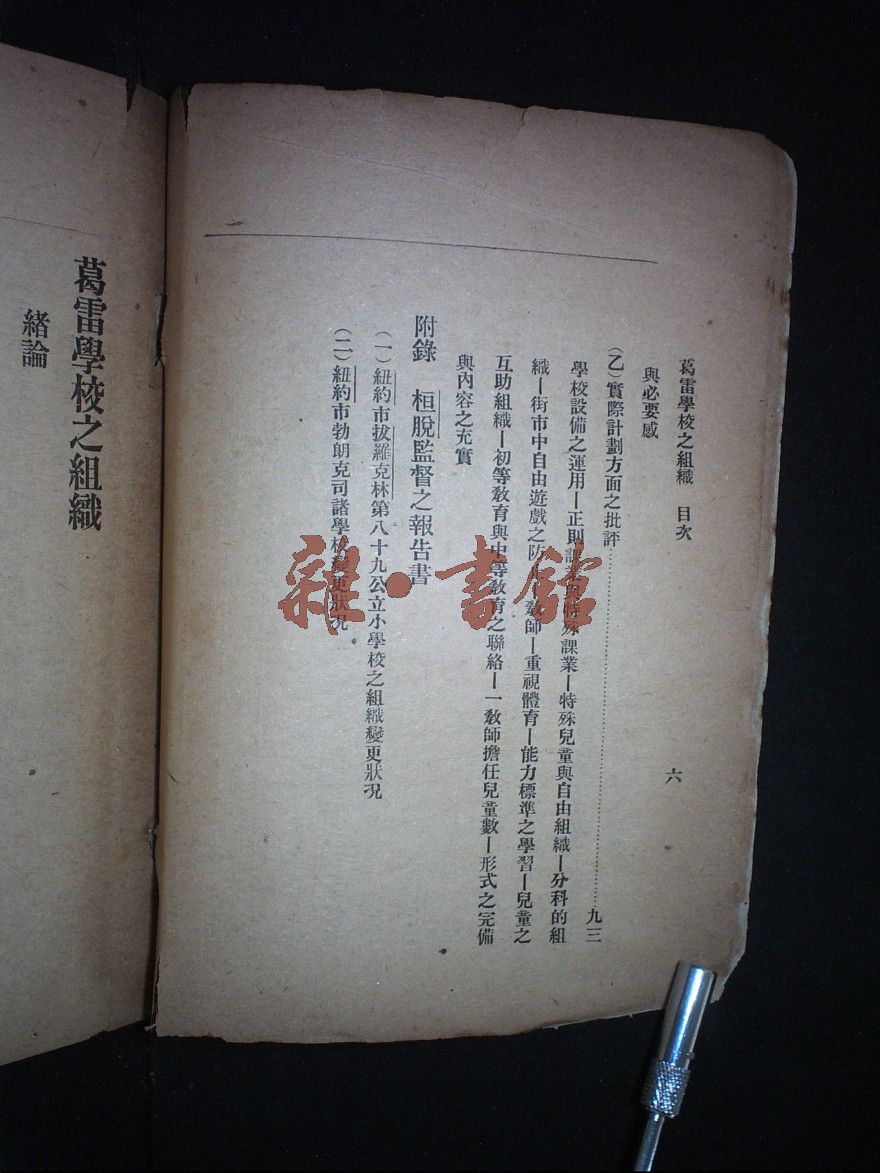 葛雷學校之組織 目次
六
與必要感
(乙)實際計劃方面之批評……九三
學校設備之運用—正則課業與特殊課業—特殊兒童與自由組織—分科的組
織—街市中自由遊戲之防止—教師—重視體育—能力標準之學習—兒童之
互助組織—初等教育與中等教育之聯絡—一教師擔任兒童數—形式之完備
與內容之充實
附錄 桓脫監督之報告書
(一)紐約市拔羅克林第八十九公立小學校之組織變更狀況
(二)紐約市勃朗克司諸學校變更狀況
葛雷學校之組織
緒論
雜·書館